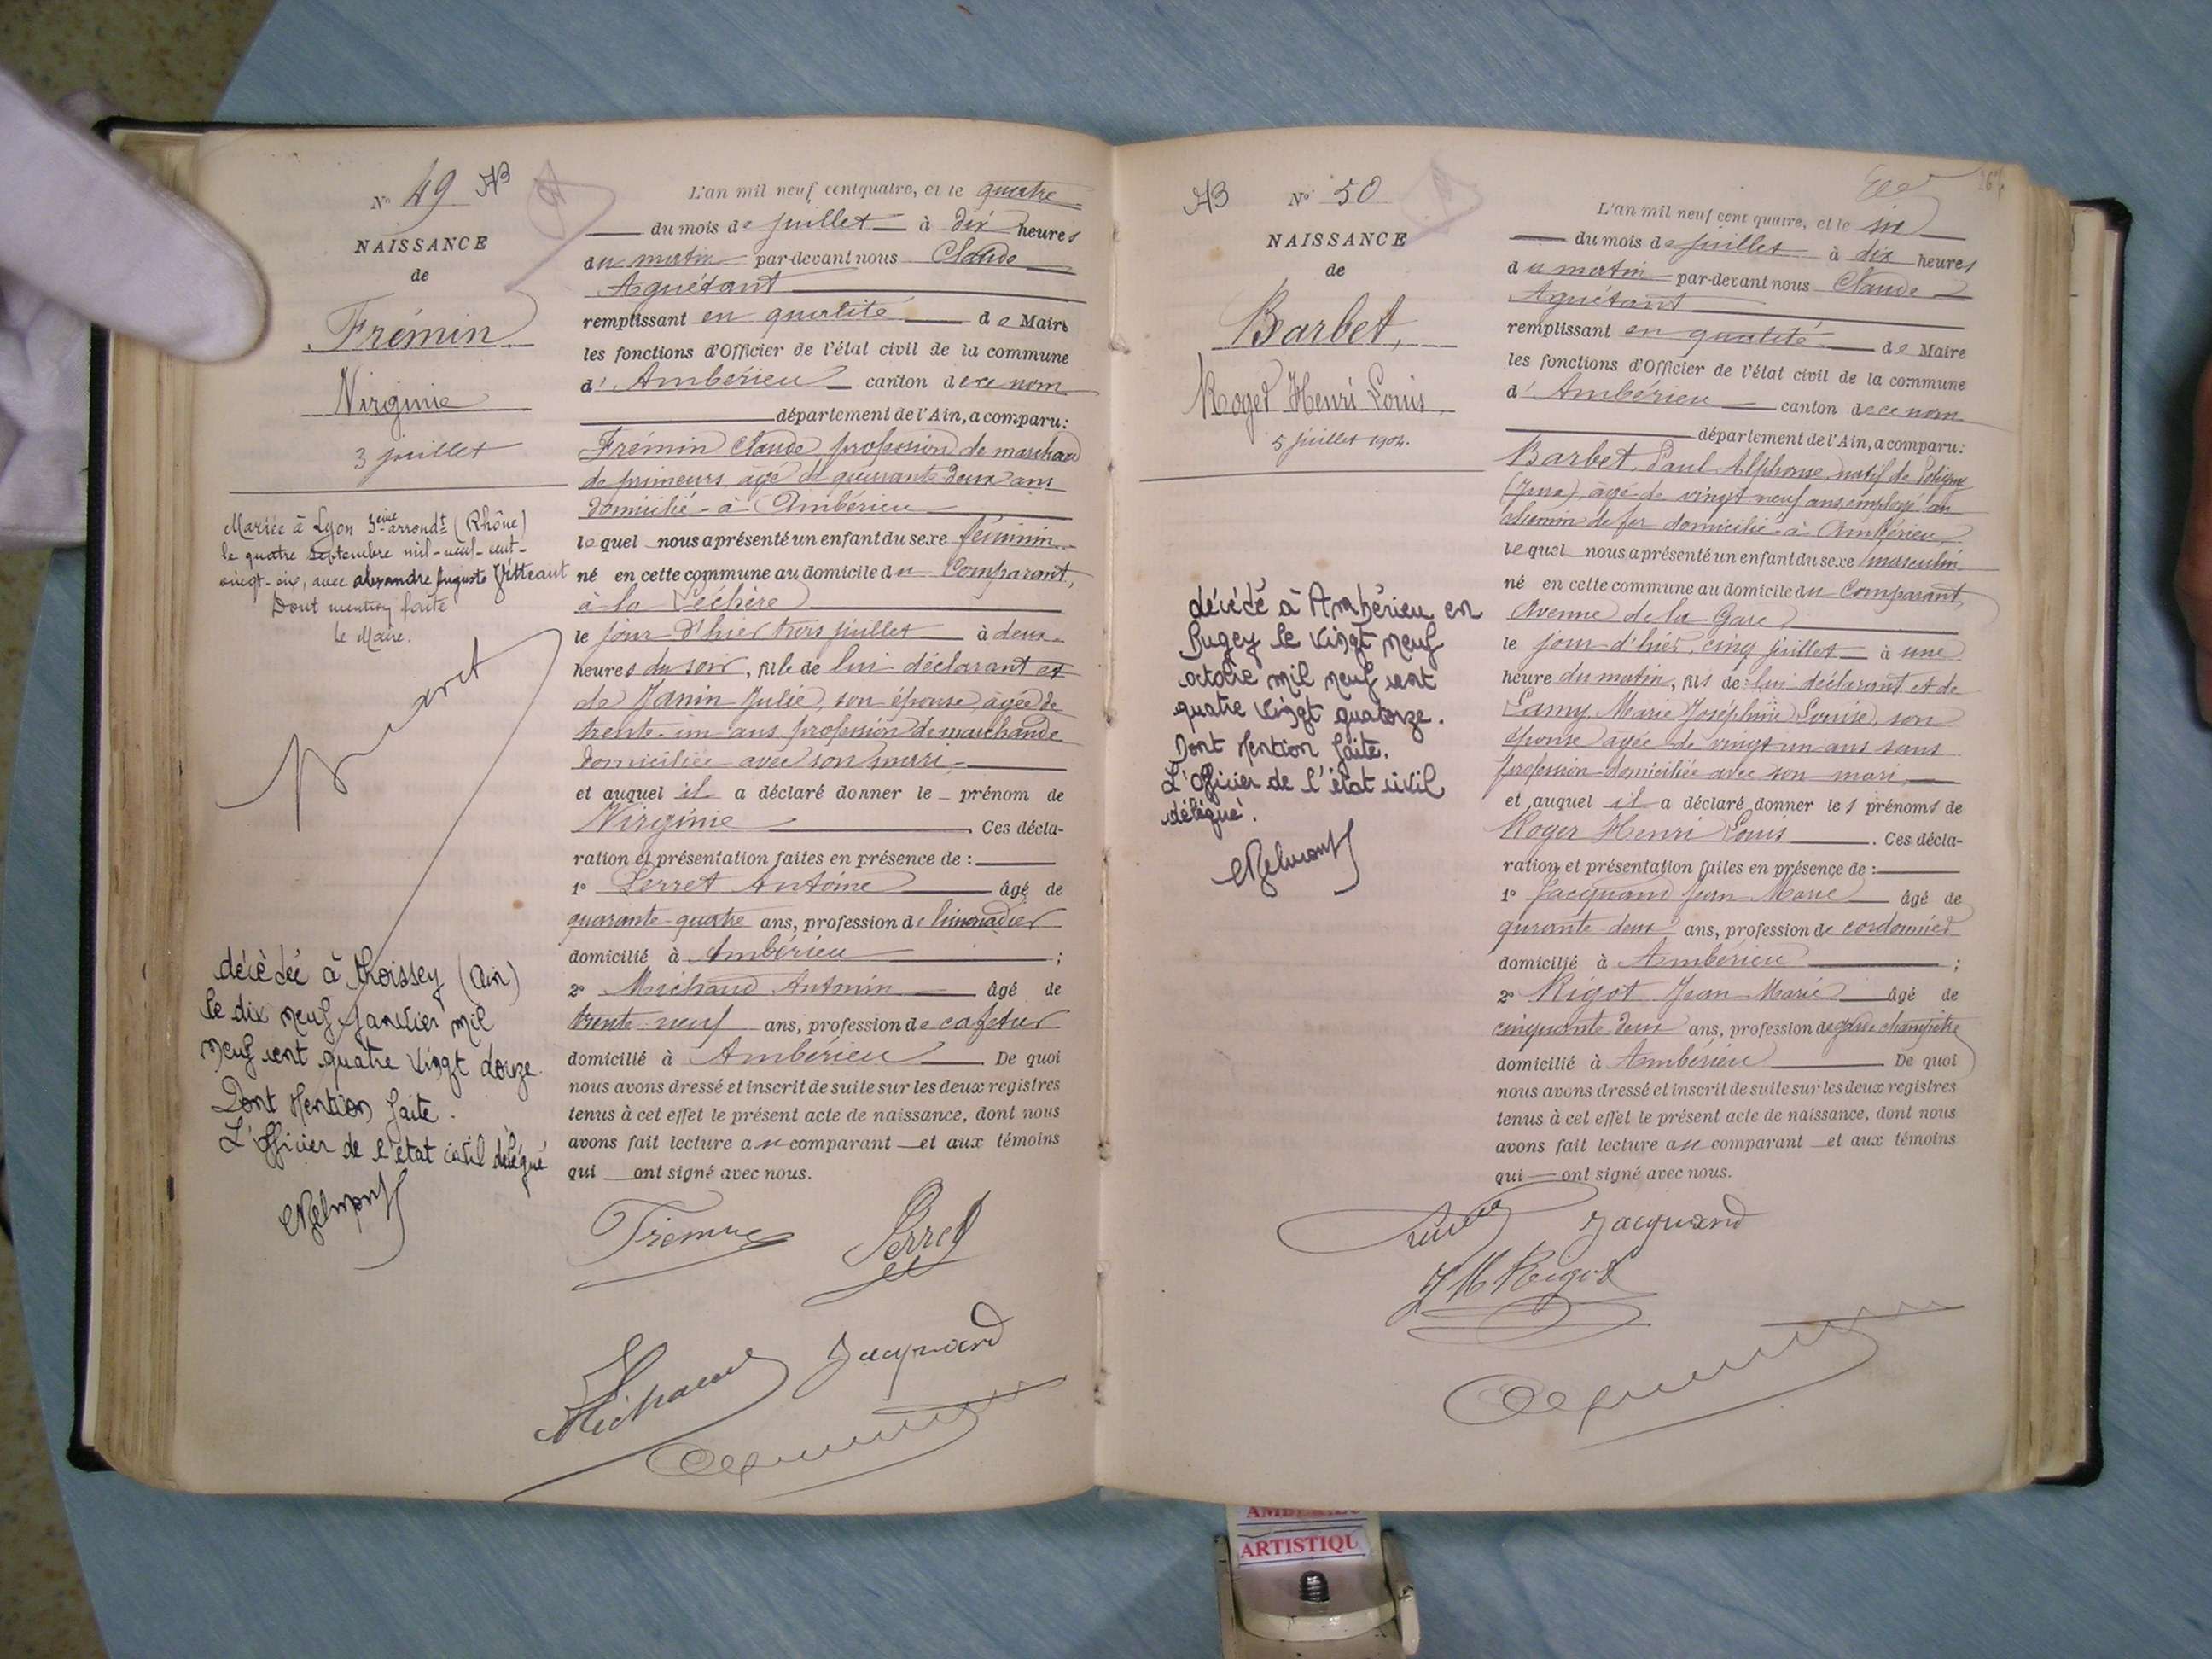 N° 49 AB
NAISSANCE
de
Frémin
Virginie
3 juillet
Mariée à Lyon 3ème arrondt (Rhône)
le quatre septembre mil-neuf-cent-
vingt-six, avec alexandre Auguste
Dont mention faite
le Maire.
décèdée à thoissey (Ain)
le dix neuf janvier mil
neuf cent quatre vingt douze.
Dont Mention faite.
L'officier de l'état civil délégué
L'an mil neuf cent quatre, et le quatre
du mois de juillet à dix heures
du matin par-devant nous Claude
Aguétant
remplissant en qualité de Maire
les fonctions d'Officier de l'état civil de la commune
d' Ambérieu canton de ce nom
département de l'Ain, a comparu:
Frémin Claude, profession de marchand
de primeurs âgé de quarante deux ans
domicilié à Ambérieu
lequel nous a présenté un enfant du sexe féminin
né en cette commune au domicile du Comparant,
à la Léchère
le jour d'hier trois juillet à deux
heures du soir, fille de lui déclarant et
de Janin Julie, son épouse, agée de
trente-un ans profession de marchande
domiciliée avec son mari,
et auquel il a déclaré donner le prénom de
Virginie. Ces décla-
ration et présentation faites en présence de :
1° Perret Antoine âgé de
quarante-quatre ans, profession de limonadier
domicilié à Ambérieu ;
2° Michaud Antonin âgé de
trente neuf ans, profession de cafetier
domicilié à Ambérieu. De quoi
nous avons dressé et inscrit de suite sur les deux registres
tenus à cet effet le présent acte de naissance, dont nous
avons fait lecture au comparant et aux témoins
qui ont signé avec nous.
Perret
Michaud Jacquand
AB N° 50
NAISSANCE
de
Barbet,
Roger Henri Louis,
5 juillet 1904.
décédé à Ambérieu en
Bugey le vingt neuf
octobre mil neuf cent
quatre vingt quatorze.
Dont Mention faite.
L'officier de l'état civil
délégué.
L'an mil neuf cent quatre, et le six
du mois de juillet à dix heures
du matin par-devant nous Claude
Aguétant
remplissant en qualité de Maire
les fonctions d'Officier de l'état civil de la commune
d' Ambérieu canton de ce nom
département de l'Ain, a comparu:
Barbet, Paul Alphonse, natif de Poligny
(Jura), âgé de vingt neuf ans, employé au
chemin de fer domicilié à Ambérieu,
lequel nous a présenté un enfant du sexe masculin
né en cette commune au domicile du Comparant,
Avenue de la Gare
le jour d'hier, cinq juillet à une
heure du matin, fils de lui déclarant et de
Lamy, Marie Joséphine Louise, son
épouse agée de vingt-un ans sans
profession domiciliée avec son mari,
et auquel il a déclaré donner les prénoms de
Roger Henri Louis. Ces décla-
ration et présentation faites en présence de :
1° Jacquand Jean Marie âgé de
qurante deux ans, profession de cordonnier
domicilié à Ambérieu ;
2° Rigot Jean-Marie âgé de
cinquante deux ans, profession de garde champêtre
domicilié à Ambérieu De quoi
nous avons dressé et inscrit de suite sur les deux registres
tenus à cet effet le présent acte de naissance, dont nous
avons fait lecture au comparant et aux témoins
qui ont signé avec nous.
Jacquand
J M Rigot
ARTISTIQU